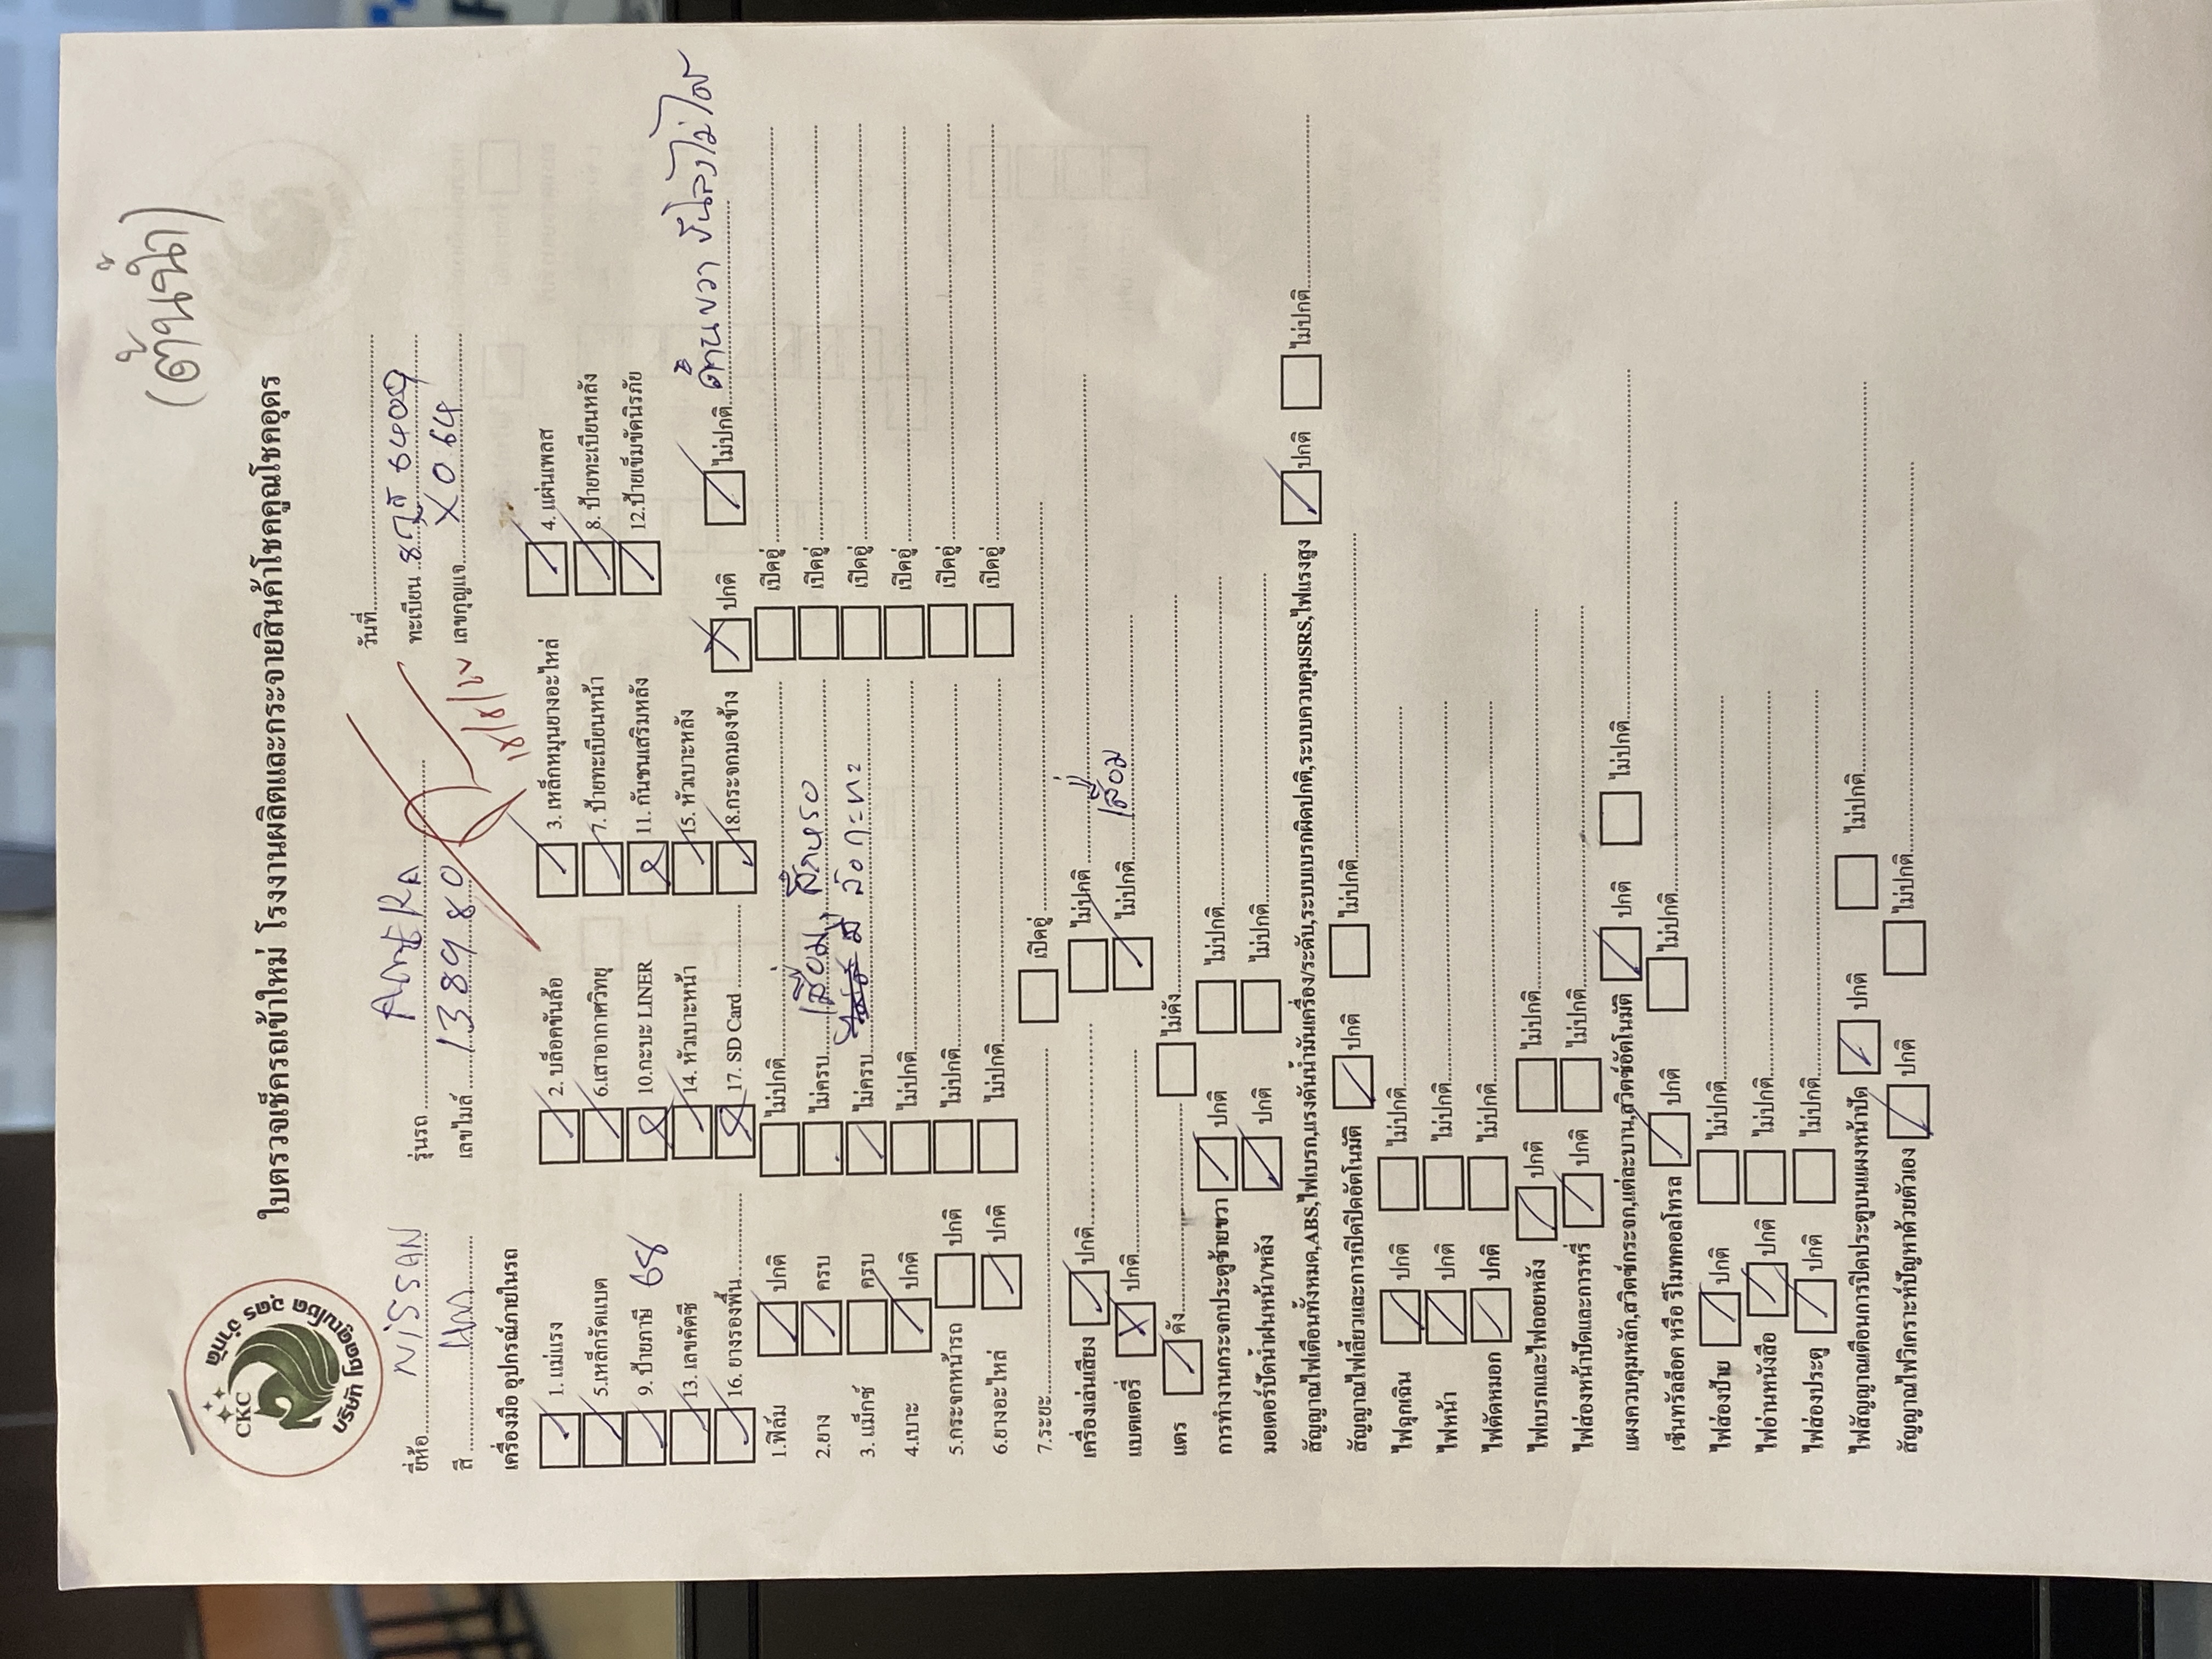 (ต้านน้ำ)
CKC
บริษัท โชคคูณโชค อุดร จำกัด
ใบตรวจเช็ครถเข้าใหม่ โรงงานผลิตและกระจายสินค้าโชคคูณโชคอุดร
วันที่
ยี่ห้อ NISSAN รุ่นรถ ทะเบียน 6409
สี เทา เลขไมล์ 138980 เลขกุญแจ X064
เครื่องมือ อุปกรณ์ภายในรถ
1. แม่แรง 2. บล็อคขันล้อ 3. เหล็กหมุนยางอะไหล่ 4. แผ่นเพลส
5.เหล็กรัดแบต 6.เสาอากาศวิทยุ 7. ป้ายทะเบียนหน้า 8. ป้ายทะเบียนหลัง
9. ป้ายภาษี 68 10.กะบะ LINER 11. กันชนเสริมหลัง 12.ป้ายเข็มขัดนิรภัย
13. เลขคัตซี 14. หัวเบาะหน้า 15. หัวเบาะหลัง
16. ยางรองพื้น 17. SD Card 18.กระจกมองข้าง ปกติ ไม่ปกติ ด้านขวา ขึ้นลงไม่ได้
1.ฟิล์ม ปกติ ไม่ปกติ เปิดอู่
2.ยาง ครบ ไม่ครบ เสื่อม, สึกหรอ เปิดอู่
3. แม็กซ์ ครบ ไม่ครบ มี ล้อกะทะ เปิดอู่
4.เบาะ ปกติ ไม่ปกติ เปิดอู่
5.กระจกหน้ารถ ปกติ ไม่ปกติ เปิดอู่
6.ยางอะไหล่ ปกติ ไม่ปกติ เปิดอู่
7.ระยะ เปิดอู่
เครื่องเล่นเสียง ปกติ ไม่ปกติ
แบตเตอรี่ ปกติ ไม่ปกติ เสื่อม
แตร ดัง ไม่ดัง
การทำงานกระจกประตูซ้ายขวา ปกติ ไม่ปกติ
มอเตอร์ปัดน้ำฝนหน้า/หลัง ปกติ ไม่ปกติ
สัญญาณไฟเตือนทั้งหมด,ABS,ไฟเบรก,แรงดันน้ำมันเครื่อง/ระดับ,ระบบเบรกผิดปกติ,ระบบควบคุมSRS,ไฟแรงสูง ปกติ ไม่ปกติ
สัญญาณไฟเลี้ยวและการเปิดปิดอัตโนมัติ ปกติ ไม่ปกติ
ไฟฉุกเฉิน ปกติ ไม่ปกติ
ไฟหน้า ปกติ ไม่ปกติ
ไฟตัดหมอก ปกติ ไม่ปกติ
ไฟเบรกและไฟถอยหลัง ปกติ ไม่ปกติ
ไฟส่องหน้าปัดและการหรี่ ปกติ ไม่ปกติ
แผงควบคุมหลัก,สวิตช์กระจก,แต่ละบาน,สวิตช์อัตโนมัติ ปกติ ไม่ปกติ
เซ็นทรัลล็อค หรือ รีโมทคอลโทรล ปกติ ไม่ปกติ
ไฟส่องป้าย ปกติ ไม่ปกติ
ไฟอ่านหนังสือ ปกติ ไม่ปกติ
ไฟส่องประตู ปกติ ไม่ปกติ
ไฟสัญญาณเตือนการปิดประตูบนแผงหน้าปัด ปกติ ไม่ปกติ
สัญญาณไฟวิเคราะห์ปัญหาด้วยตัวเอง ปกติ ไม่ปกติ